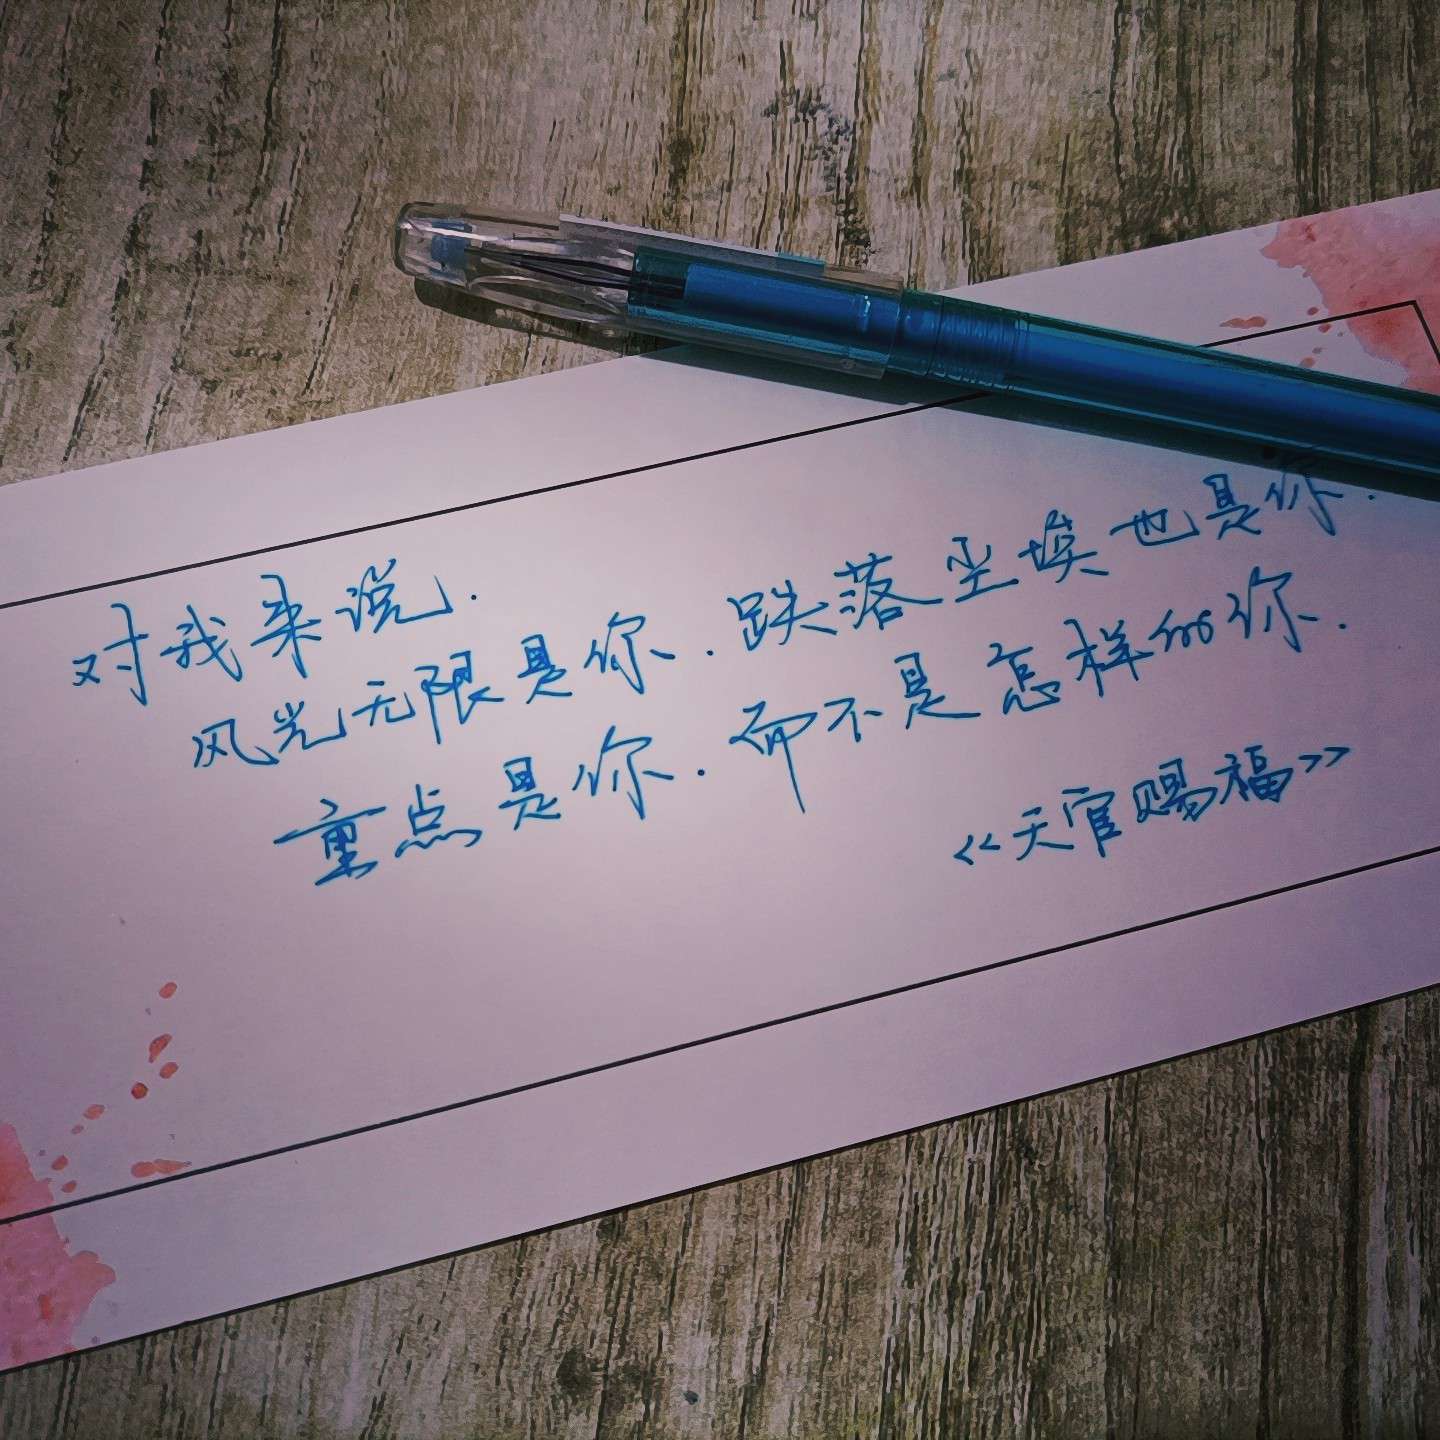 对我来说.
风光无限是你.跌落尘埃也是你.
重点是你.而不是怎样的你.
《天官赐福》